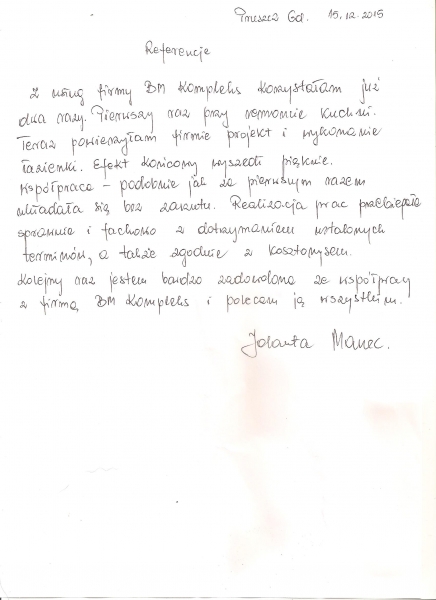 Pruszcz Gd. 15.12.2015
Referencje
Z usług firmy BM Kompleks korzystałam już
dwa razy. Pierwszy raz przy remoncie kuchni.
Teraz powierzyłam firmie projekt i wykonanie
łazienki. Efekt końcowy wyszedł pięknie.
Współpraca – podobnie jak za pierwszym razem
układała się bez zarzutu. Realizacja prac przebiegła
sprawnie i fachowo z dotrzymaniem ustalonych
terminów, a także zgodnie z kosztorysem.
Kolejny raz jestem bardzo zadowolona ze współpracy
z firmą BM Kompleks i polecam ją wszystkim.
Jolanta Manec.